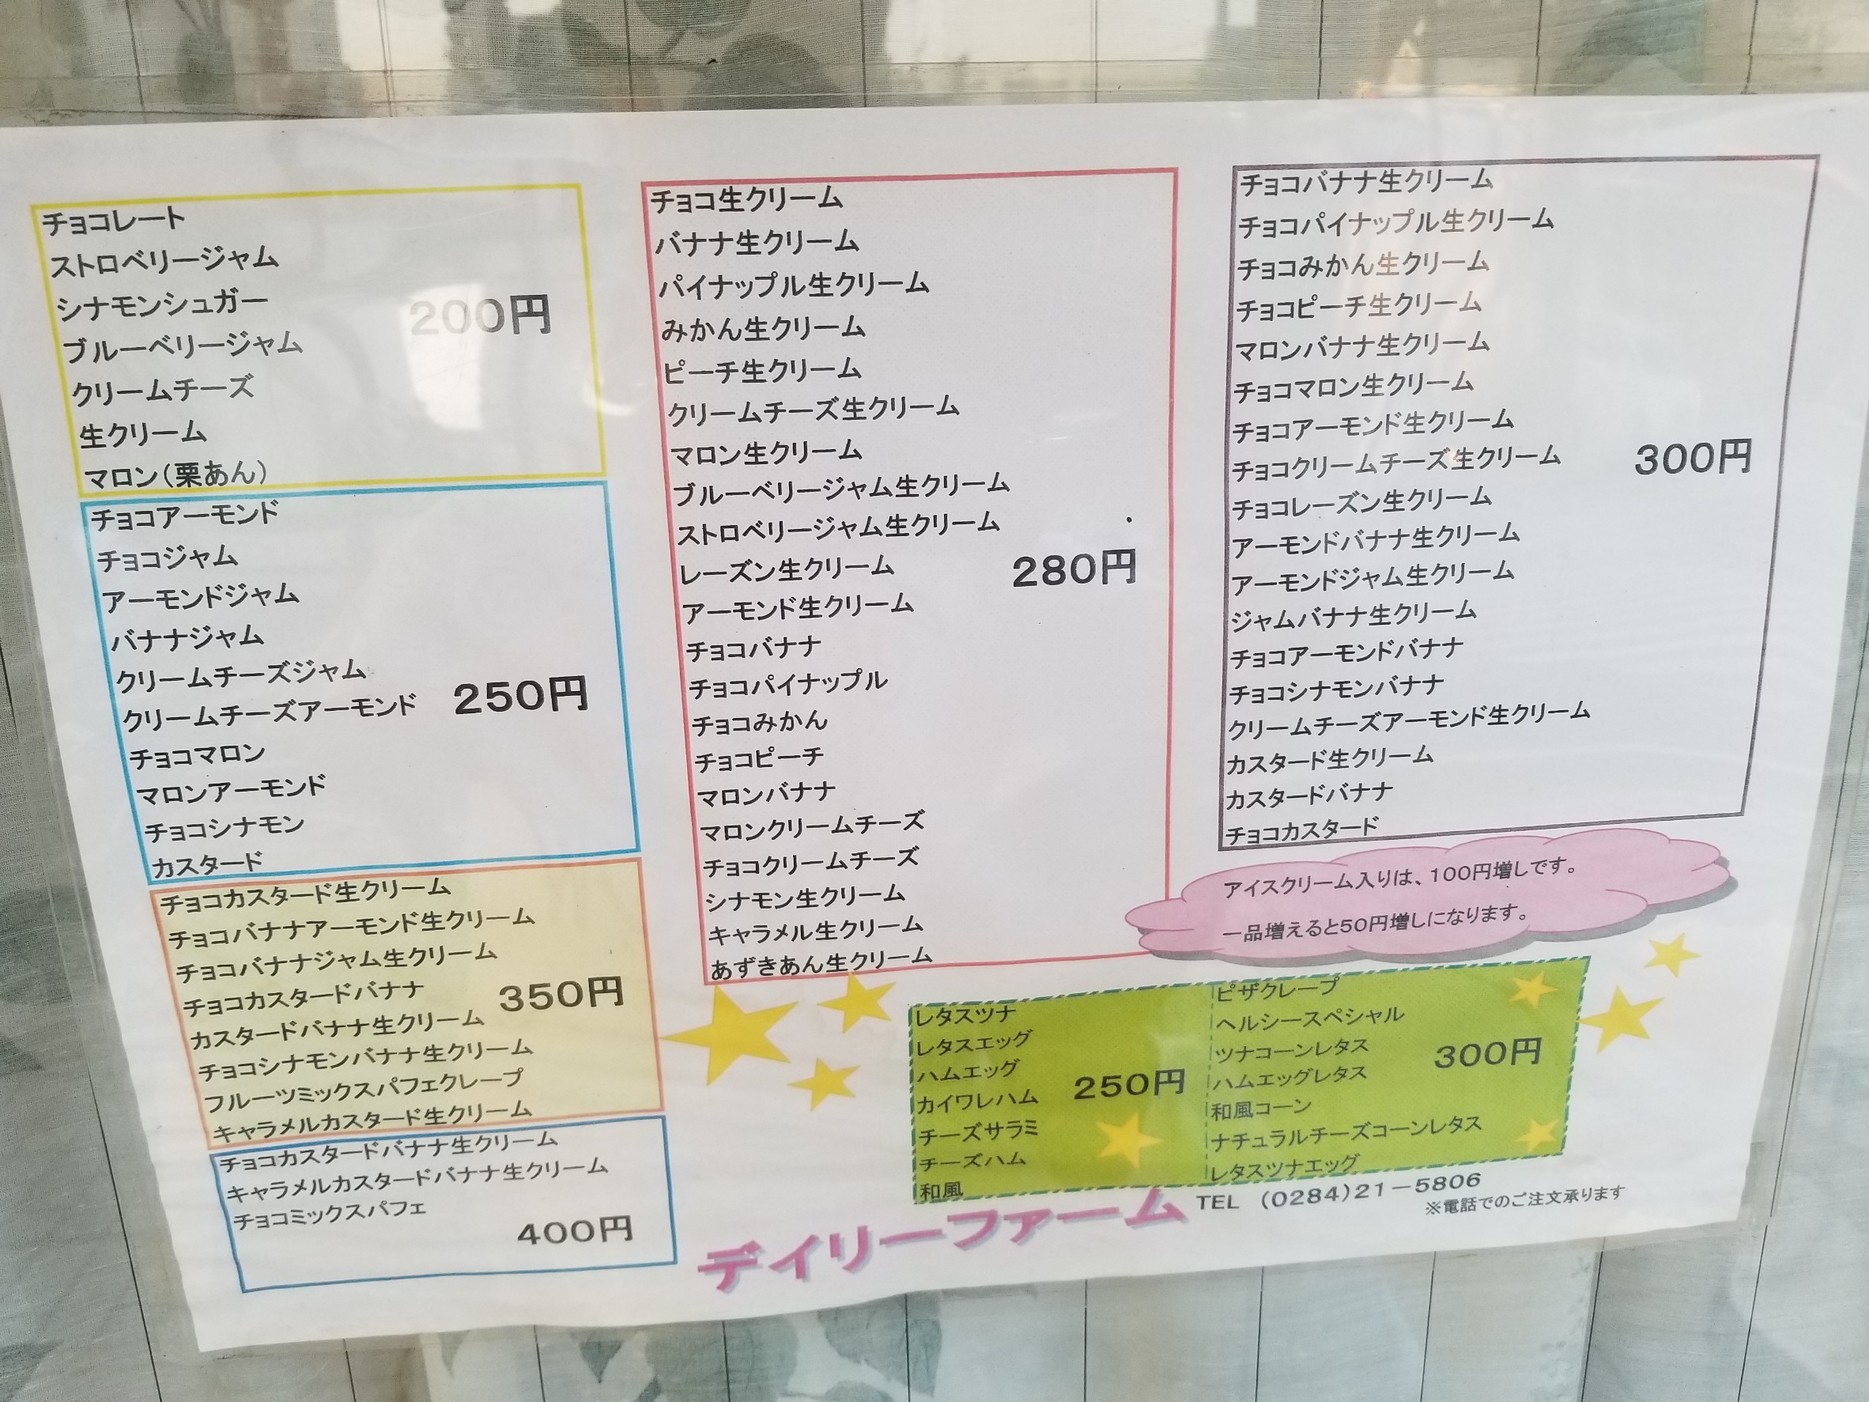 チョコレート
ストロベリージャム
シナモンシュガー
ブルーベリージャム
クリームチーズ
生クリーム
マロン(栗あん)
200円
チョコアーモンド
チョコジャム
アーモンドジャム
バナナジャム
クリームチーズジャム
クリームチーズアーモンド
チョコマロン
マロンアーモンド
チョコシナモン
カスタード
250円
チョコカスタード生クリーム
チョコバナナアーモンド生クリーム
チョコバナナジャム生クリーム
チョコカスタードバナナ
カスタードバナナ生クリーム
チョコシナモンバナナ生クリーム
フルーツミックスパフェクレープ
キャラメルカスタード生クリーム
350円
チョコカスタードバナナ生クリーム
キャラメルカスタードバナナ生クリーム
チョコミックスパフェ
400円
チョコ生クリーム
バナナ生クリーム
パイナップル生クリーム
みかん生クリーム
ピーチ生クリーム
クリームチーズ生クリーム
マロン生クリーム
ブルーベリージャム生クリーム
ストロベリージャム生クリーム
レーズン生クリーム
アーモンド生クリーム
チョコバナナ
チョコパイナップル
チョコみかん
チョコピーチ
マロンバナナ
マロンクリームチーズ
チョコクリームチーズ
シナモン生クリーム
キャラメル生クリーム
あずきあん生クリーム
280円
チョコバナナ生クリーム
チョコパイナップル生クリーム
チョコみかん生クリーム
チョコピーチ生クリーム
マロンバナナ生クリーム
チョコマロン生クリーム
チョコアーモンド生クリーム
チョコクリームチーズ生クリーム
チョコレーズン生クリーム
アーモンドバナナ生クリーム
アーモンドジャム生クリーム
ジャムバナナ生クリーム
チョコアーモンドバナナ
チョコシナモンバナナ
クリームチーズアーモンド生クリーム
カスタード生クリーム
カスタードバナナ
チョコカスタード
300円
アイスクリーム入りは、100円増しです。
一品増えると50円増しになります。
レタスツナ
レタスエッグ
ハムエッグ
カイワレハム
チーズサラミ
チーズハム
和風
250円
ピザクレープ
ヘルシースペシャル
ツナコーンレタス
ハムエッグレタス
和風コーン
ナチュラルチーズコーンレタス
レタスツナエッグ
300円
デイリーファーム
TEL (0284)21-5806
※電話でのご注文承ります